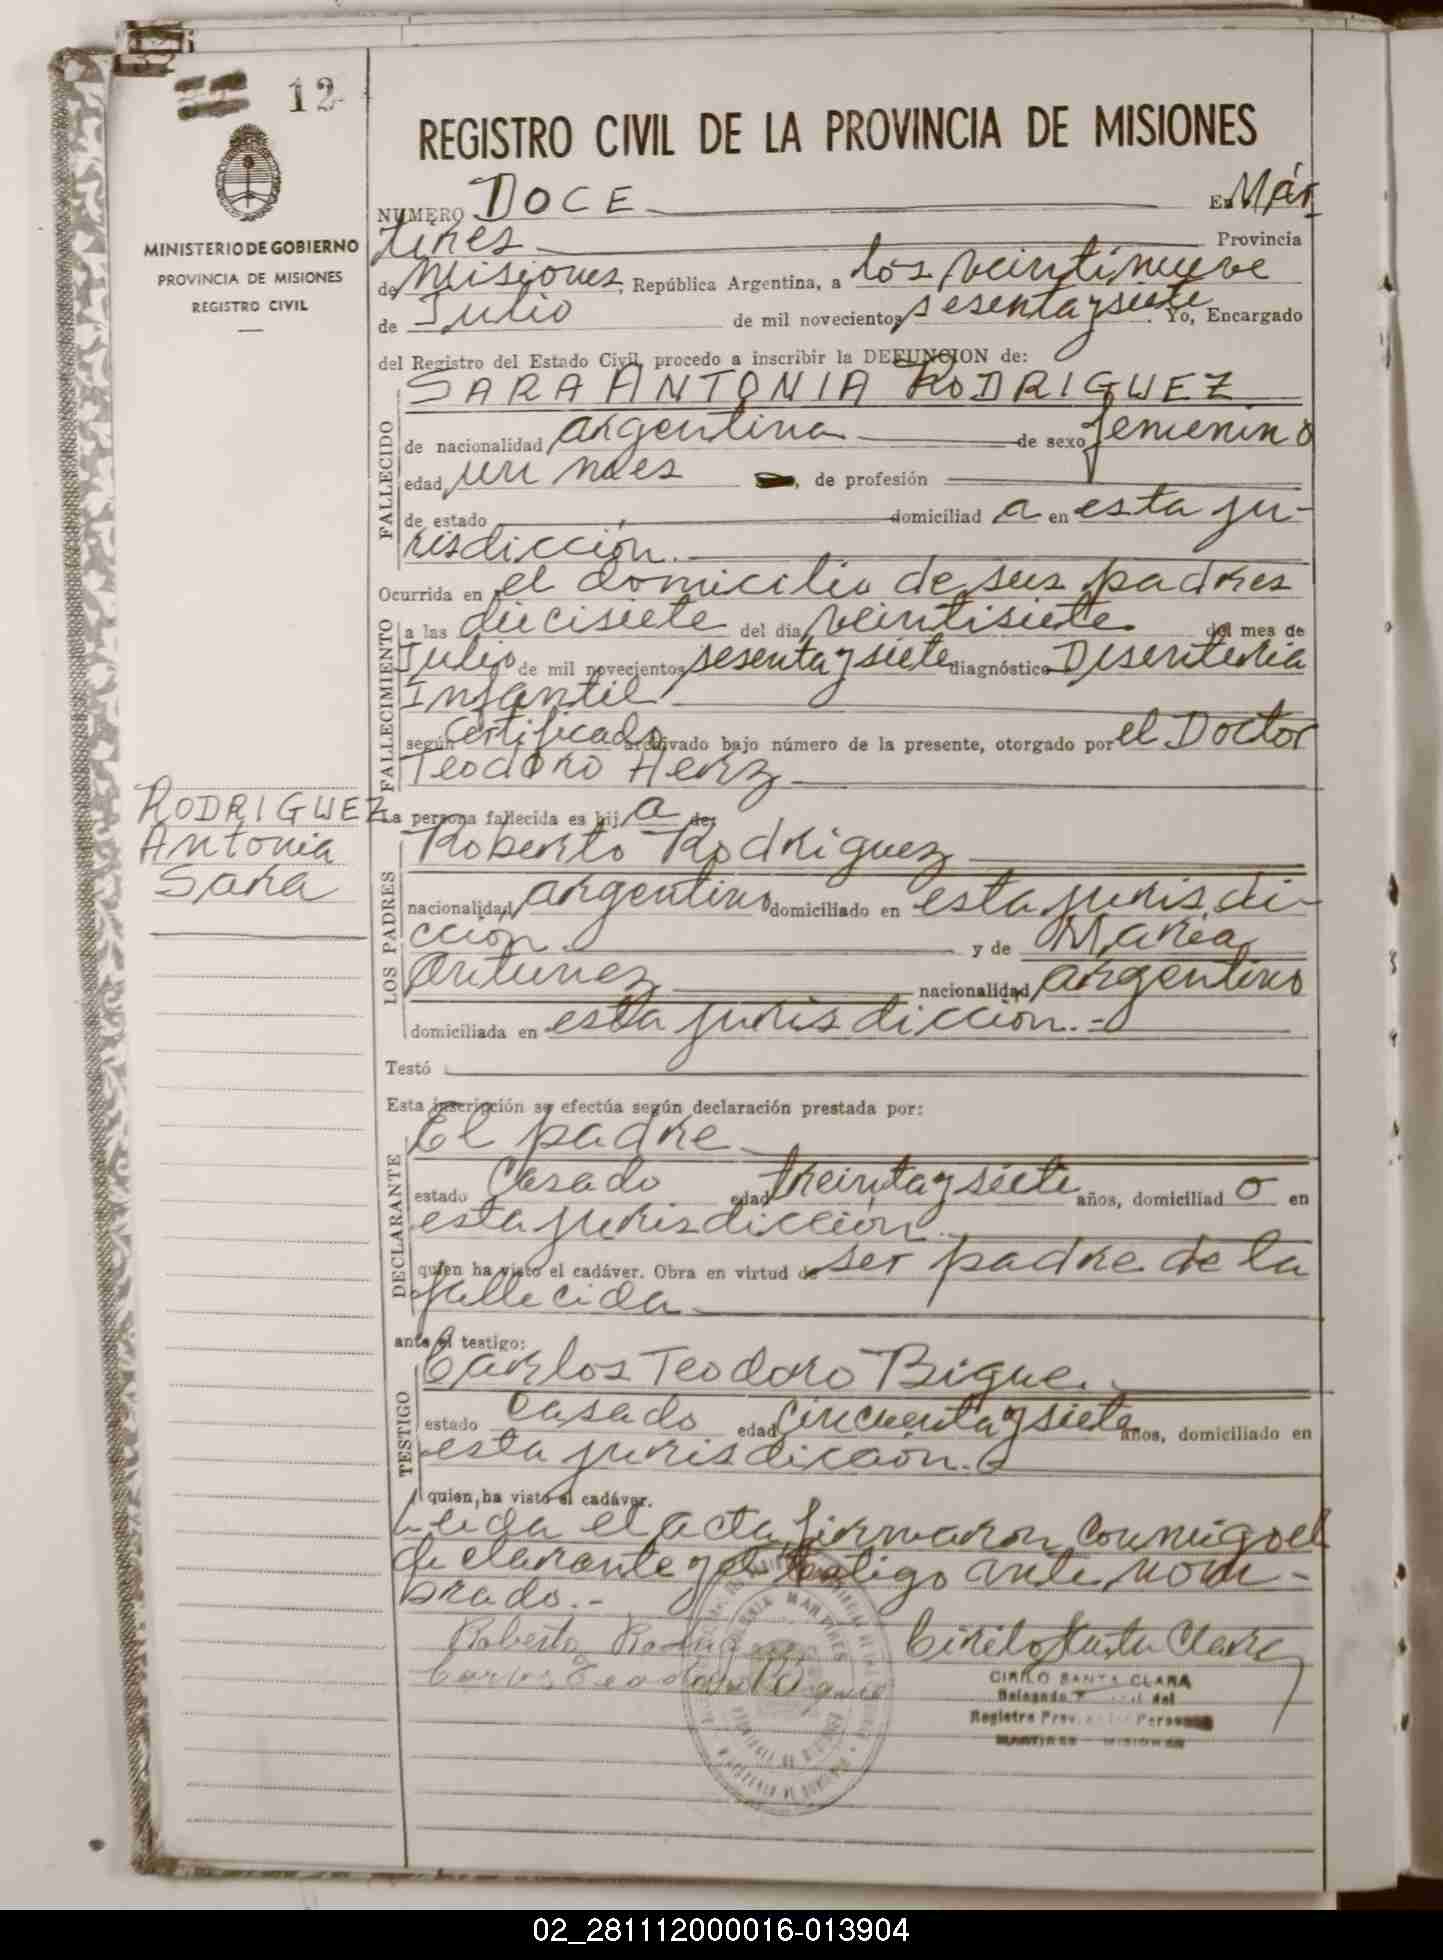 12
REGISTRO CIVIL DE LA PROVINCIA DE MISIONES
MINISTERIO DE GOBIERNO
PROVINCIA DE MISIONES
REGISTRO CIVIL
NUMERO DOCE En Már
tires Provincia
de Misiones, República Argentina, a los veintinueve
de Julio de mil novecientos sesenta y siete. Yo, Encargado
del Registro del Estado Civil, procedo a inscribir la DEFUNCION de:
FALLECIDO
SARA ANTONIA RODRIGUEZ
de nacionalidad argentina de sexo femenino
edad un mes, de profesión
de estado domiciliad a en esta ju-
risdicción.
Ocurrida en el domicilio de sus padres
FALLECIMIENTO
a las diecisiete del día veintisiete del mes de
Julio de mil novecientos sesenta y siete diagnóstico Disenteria
Infantil
según Certificado archivado bajo número de la presente, otorgado por el Doctor
Teodoro Herz
RODRIGUEZ
Antonia
Sara
La persona fallecida es hij a de:
LOS PADRES
Roberto Rodriguez
nacionalidad argentino domiciliado en esta jurisdi-
cción. y de Maria
Antunez nacionalidad argentino
domiciliada en esta jurisdicción.-
Testó
Esta inscripción se efectúa según declaración prestada por:
DECLARANTE
El padre
estado Casado edad treinta y siete años, domiciliad o en
esta jurisdicción
quien ha visto el cadáver. Obra en virtud de ser padre de la
fallecida
ante el testigo:
TESTIGO
Carlos Teodoro Bigue.
estado Casado edad Cincuenta y siete años, domiciliado en
esta jurisdicción.
quien, ha visto el cadáver.
Leida el acta firmaron conmigo el
declarante y el testigo ante nom-
brado.-
Roberto Cirilo Santa Clara
Carlos Teodoro
CIRILO SANTA CLARA
Delegado del
Registro
MARTIRES - MISIONES
02_281112000016-013904